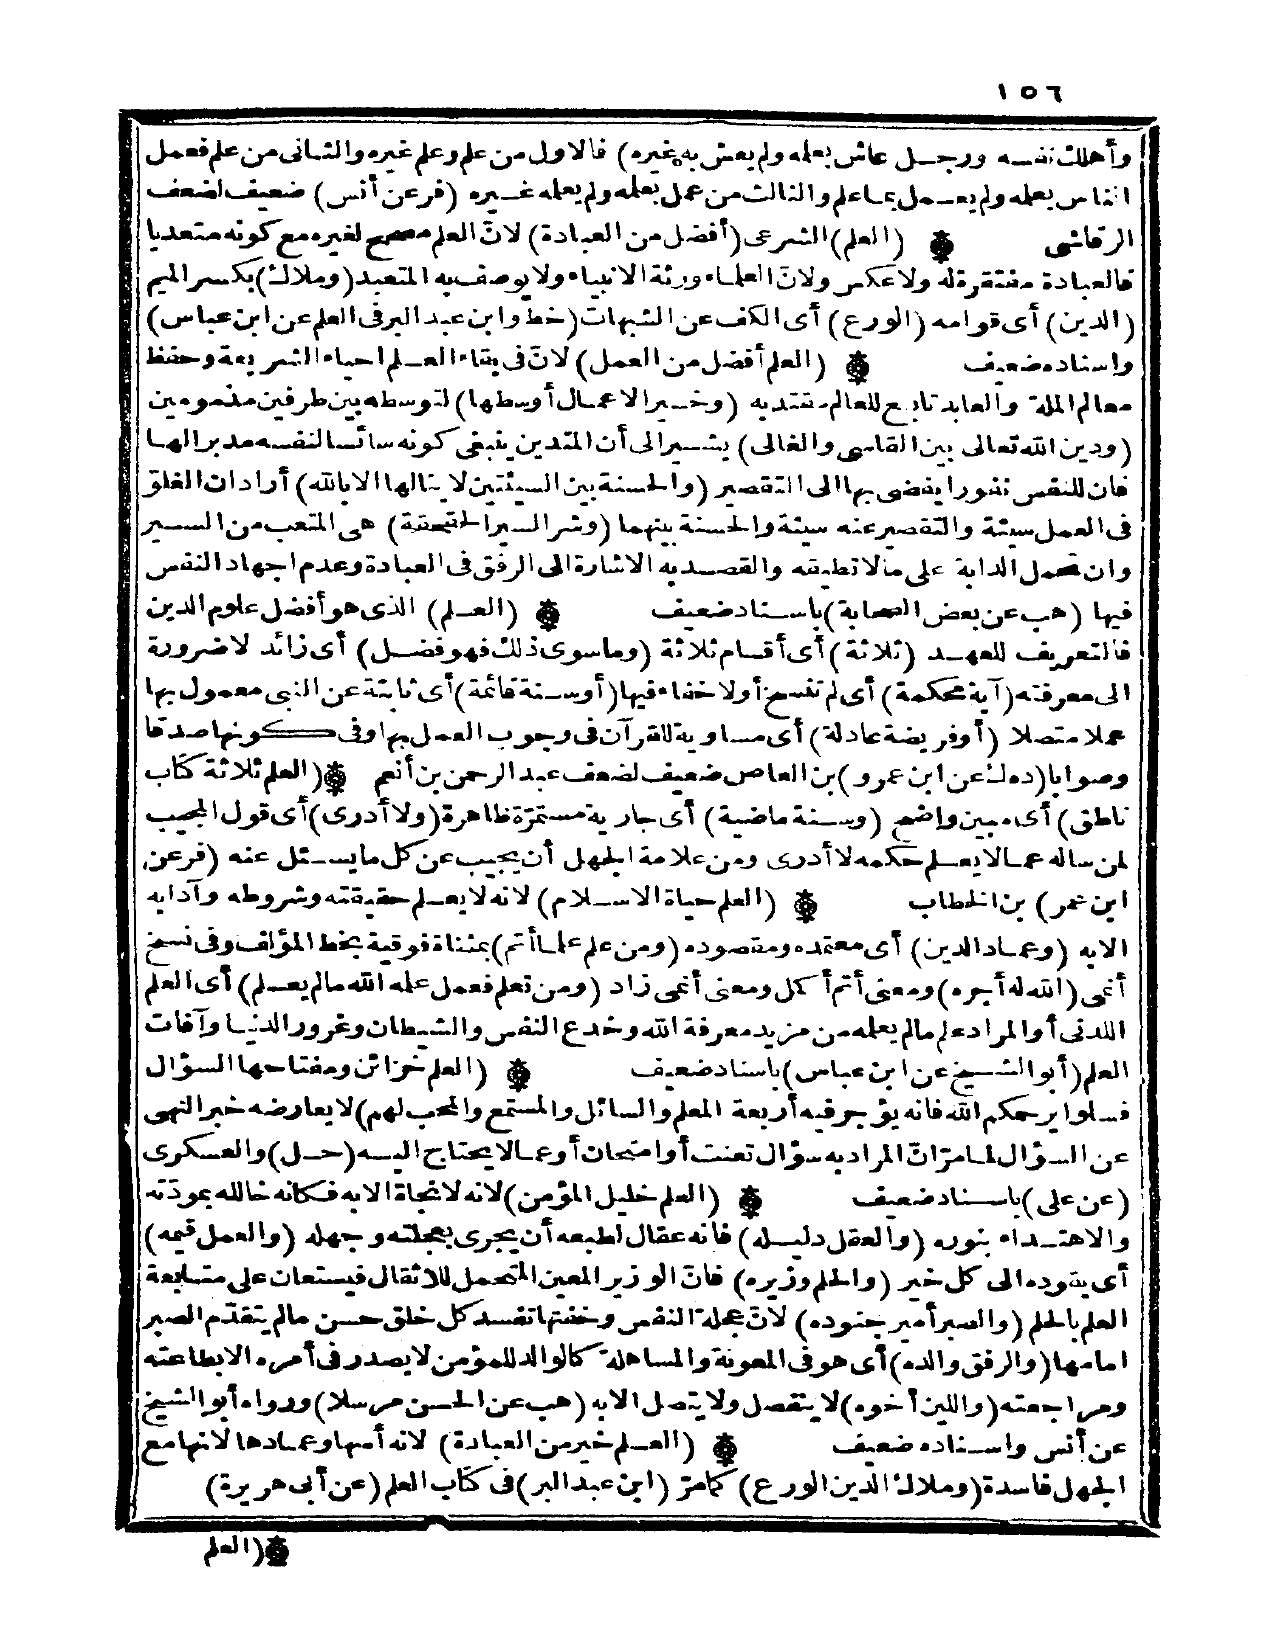 ١٥٦
وأهلك نفسه ورجل عاش بعلمه ولم يعش به غيره) فالاول من علم وعلم غيره والثانى من علم فعمل
الناس بعلمه ولم يعمل بما علم والثالث من عمل بعلمه ولم يعلمه غيره (فر عن أنس) ضعيف لضعف
الرقاشى ۞ (العلم) الشرعى (أفضل من العبادة) لانّ العلم مصحح لغيره مع كونه متعديا
فالعبادة مفتقرة له ولا عكس ولانّ العلماء ورثة الانبياء ولا يوصف به المتعبد (وملاك) بكسر الميم
(الدين) أى قوامه (الورع) أى الكف عن الشبهات (خط وابن عبد البر فى العلم عن ابن عباس)
واسناده ضعيف ۞ (العلم أفضل من العمل) لانّ فى بقاء العلم احياء الشريعة وحفظ
معالم الملة والعابد تابع للعالم مقتد به (وخير الاعمال أوسطها) لتوسطه بين طرفين مذمومين
(ودين الله تعالى بين القاسى والغالى) يشير الى أن المتدين ينبغى كونه سائسا لنفسه مدبر الها
فان للنفس نفورا يفضى بها الى التقصير (والحسنة بين السيئتين لا ينالها الا بالله) أراد ان الغلق
فى العمل سيئة والتقصير عنه سيئة والحسنة بينهما (وشر السير الحقحقة) هى المتعب من السير
وان تحمل الدابة على ما لا تطيقه والقصد به الاشارة الى الرفق فى العبادة وعدم اجهاد النفس
فيها (هب عن بعض الصحابة) باسناد ضعيف ۞ (العلم) الذى هو أفضل علوم الدين
فالتعريف للعهد (ثلاثة) أى أقسام ثلاثة (وما سوى ذلك فهو فضل) أى زائد لا ضرورة
الى معرفته (آية محكمة) أى لم تنسخ أو لا خفاء فيها (أو سنة قائمة) أى ثابتة عن النبى معمول بها
عملا متصلا (أو فريضة عادلة) أى مساوية للقرآن فى وجوب العمل بها وفى كونها صدقا
وصوابا (ده ك عن ابن عمرو) بن العاص ضعيف لضعف عبد الرحمن بن أنعم ۞ (العلم ثلاثة كتاب
ناطق) أى مبين واضح (وسنة ماضية) أى جارية مستمرّة ظاهرة (ولا أدرى) أى قول المجيب
لمن سأله عما لا يعلم حكمه لا أدرى ومن علامة الجهل أن يجيب عن كل ما يسئل عنه (فر عن
ابن عمر) بن الخطاب ۞ (العلم حياة الاسلام) لانه لا يعلم حقيقته وشروطه وآدابه
الا به (وعماد الدين) أى معتمده ومقصوده (ومن علم علما أتم) بمثناة فوقية بخط المؤلف وفى نسخ
أنمى (الله له أجره) ومعنى أتم أكل ومعنى أنمى زاد (ومن تعلم فعمل علمه الله ما لم يعلم) أى العلم
اللدنى أو المراد علم ما لم يعلمه من مزيد معرفة الله وخدع النفس والشيطان وغرور الدنيا وآفات
العلم (أبو الشيخ عن ابن عباس) باسناد ضعيف ۞ (العلم خزائن ومفتاحها السؤال
فسلوا يرحمكم الله فانه يؤجر فيه أربعة المعلم والسائل والمستمع والمحب لهم) لا يعارضه خبر النهى
عن السؤال لما مرّ انّ المراد به سؤال تعنت أو امتحان أو عما لا يحتاج اليه (حل) والعسكرى
(عن على) باسناد ضعيف ۞ (العلم خليل المؤمن) لانه لا نجاة الا به فكانه خالله بموذته
والاهتداء بنوره (والعقل دليله) فانه عقال لطبعه أن يجرى بعجلته وجهله (والعمل قيمه)
أى يقوده الى كل خير (والحلم وزيره) فانّ الوزير المعين المتحمل للاثقال فيستعان على متابعة
العلم بالحلم (والصبر أمير جنوده) لانّ عجلة النفس وخفتها تفسد كل خلق حسن ما لم يتقدّم الصبر
امامها (والرفق والده) أى هو فى المعونة والمساهلة كالوالد للمؤمن لا يصدر فى أمره الا بطاعته
ومراجعته (واللين أخوه) لا ينفصل ولا يتصل الا به (هب عن الحسن مرسلا) ورواه أبو الشيخ
عن أنس واسناده ضعيف ۞ (العلم خير من العبادة) لانه أسها وعمادها لانها مع
الجهل فاسدة (وملاك الدين الورع) كما مرّ (ابن عبد البر) فى كتاب العلم (عن أبى هريرة)
۞ (العلم